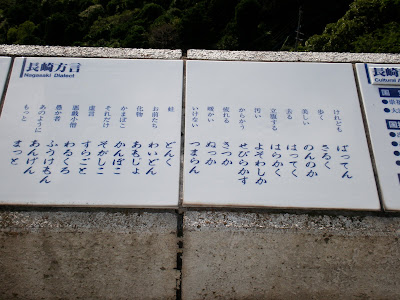 長崎方言
Nagasaki Dialect
けれども ばってん
歩く さるく
美しい のんのか
去る はってく
立腹する はらかく
汚い よそわしか
からかう せびらかす
疲れる きつか
暖かい ぬっか
いけない つまらん
蛙 どんく
お前たち わいどん
化物 あもじょ
かまぼこ かんぼこ
それだけ そがしこ
虚言 すらごと
悪戯小僧 わるくろ
愚か者 ふうけもん
あのように あんげん
もっと まっと
長崎
Cultural